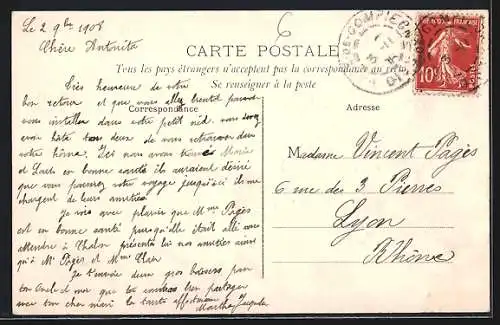 Le 2 9bre 1908
Chère Antonita
6
CARTE POSTALE
Tous les pays étrangers n'acceptent pas la correspondance au
Se renseigner à la poste
Correspondance
Adresse
Très heureuse de votre
bon retour et que vous allez bientôt pouvoir
vous installer dans votre petit nid, vous devez
avoir hâte tous deux de vous retrouver dans
votre Ici nous avons trouvé Marie
et Louis en bonne santé ils auraient désiré
que vous poussiez votre voyage jusqu'ici ils me
chargent de leurs amitiés
Je vois avec plaisir que Mme Pagès
est en bonne santé puisqu'elle était allé vous
attendre à Chalon présenté lui nos amitiés ainsi
qu'à Mr Pagès et Mme
Je t'envoie deux gros baisers pour
ton oncle et moi que tu voudras bien partager
avec ton cher mari ta tante affectionnée
Marthe
Madame Vincent Pagès
6 rue des 3 Pierres
Lyon
Rhône
RÉPUBLIQUE FRANÇAISE
10c
POSTES